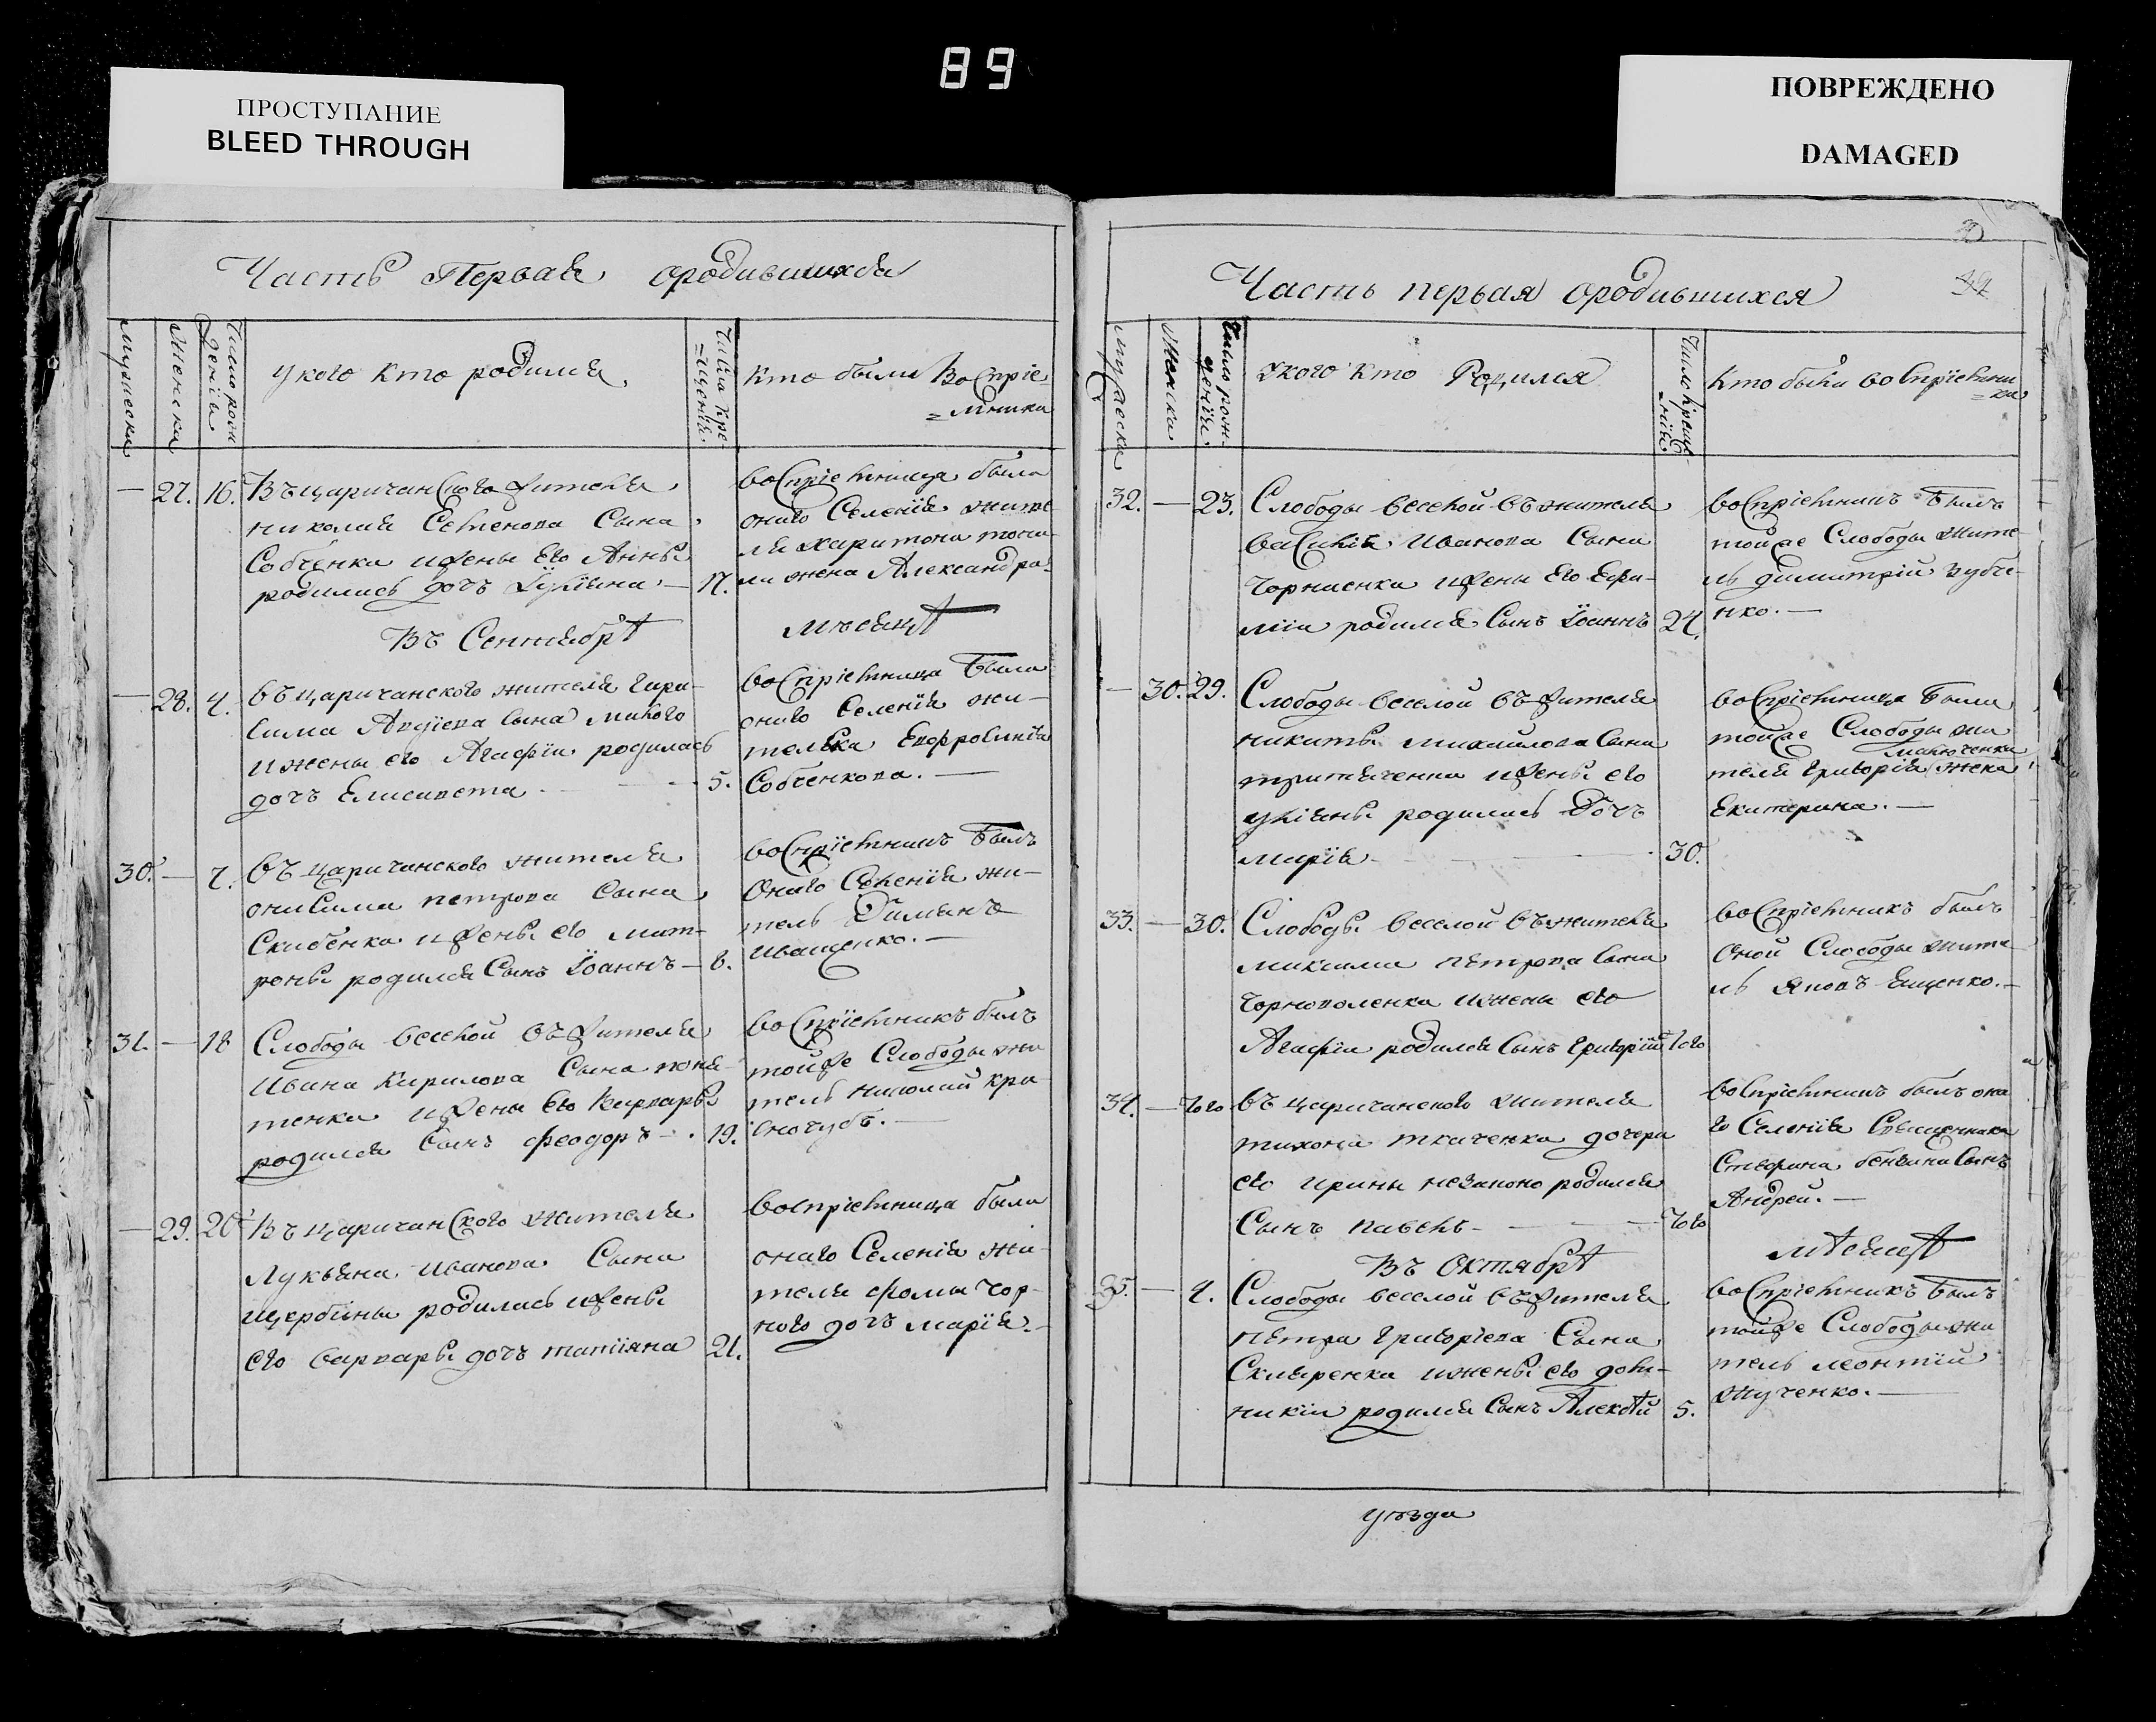 89
ПРОСТУПАНИЕ
BLEED THROUGH
ПОВРЕЖДЕНО
DAMAGED
Часть Первая ородившихся
мужеска
женска
Число рожденія
укого кто родился
Числа Кре=щенія
кто были Воспріе=
=мники
— 27. 16. Въ царичанского жителя
николая Семенова Сына
Собченка ижены Его Анны
родилась дочь Іуліяна — 17.
воспріемница была
оного Селенія жите
ля харитона
жена Александра
Въ Сентябрѣ
мѣсяцѣ
— 28. 4. въ царичанского жителя гара-
сима Авдіева сына малого
ижены его Агафіи родилась
дочь Елисавета 5.
воспріемница была
оного Селенія жи-
телька Евфросинія
Собченкова. —
30. — 7. въ царичанского жителя
онисима петрова Сына
Скибенка ижены его мат-
роны родился Сынъ Іоаннъ — 8.
воспріемникъ былъ
Оного Селенія жи-
тель Даміанъ
Иващенко. —
31. — 18 Слободы веселой въ жителя
Ивана Кирилова Сына
тенка ижены Его Варвары
родился Сынъ феодоръ — 19.
воспріемникъ былъ
тойже Слободы жи
тель николай кра
сночубъ. —
— 29. 20 Въ царичанского жителя
Лукьяна Иванова Сына
щербины родилась ижены
его варвары дочь татіяна 21.
воспріемница была
оного Селенія жи-
теля фомы чор-
ного дочь марія. —
Часть первая ородившихся
мужеска
женска
Число рож-
денія
укого кто Родился
Число Креще-
=нія
Кто были воспріемни
=ки
32. — 23. Слободы веселой въ жителя
василія Иванова Сына
Чорненка ижены Его Ефи-
міи родился Сынъ Іоаннъ 24.
воспріемникъ былъ
тойже Слободы жите-
ль димитрій зубче-
нко. —
— 30. 29. Слободы веселой въ жителя
никиты михайлова Сына
ижены его
уліяны родилась Дочь
марія 30.
воспріемница была
тойже Слободы жи
теля григорія жена
Екатерина. —
33. — 30. Слободы веселой въ жителя
максима петрова сына
Чорноволенка ижены его
Агафіи родился Сынъ григорій того
воспріемникъ былъ
Оной Слободы жите
ль яковъ Ещенко. —
34. — того въ царичанского жителя
тихона ткаченка дочери
его ирины незаконо родился
Сынъ павелъ — того
воспріемникъ былъ она
го Селенія Священника
Стефана бензина Сынъ
Андрей. —
Въ Октябрѣ
мѣсяцѣ
35. — 4. Слободы веселой въ жителя
петра григоріева Сына
Скляренка ижены его дом-
никіи родился Сынъ Алексѣй 5.
воспріемникъ былъ
тойже Слободы жи
тель леонтій
жученко. —
уезда